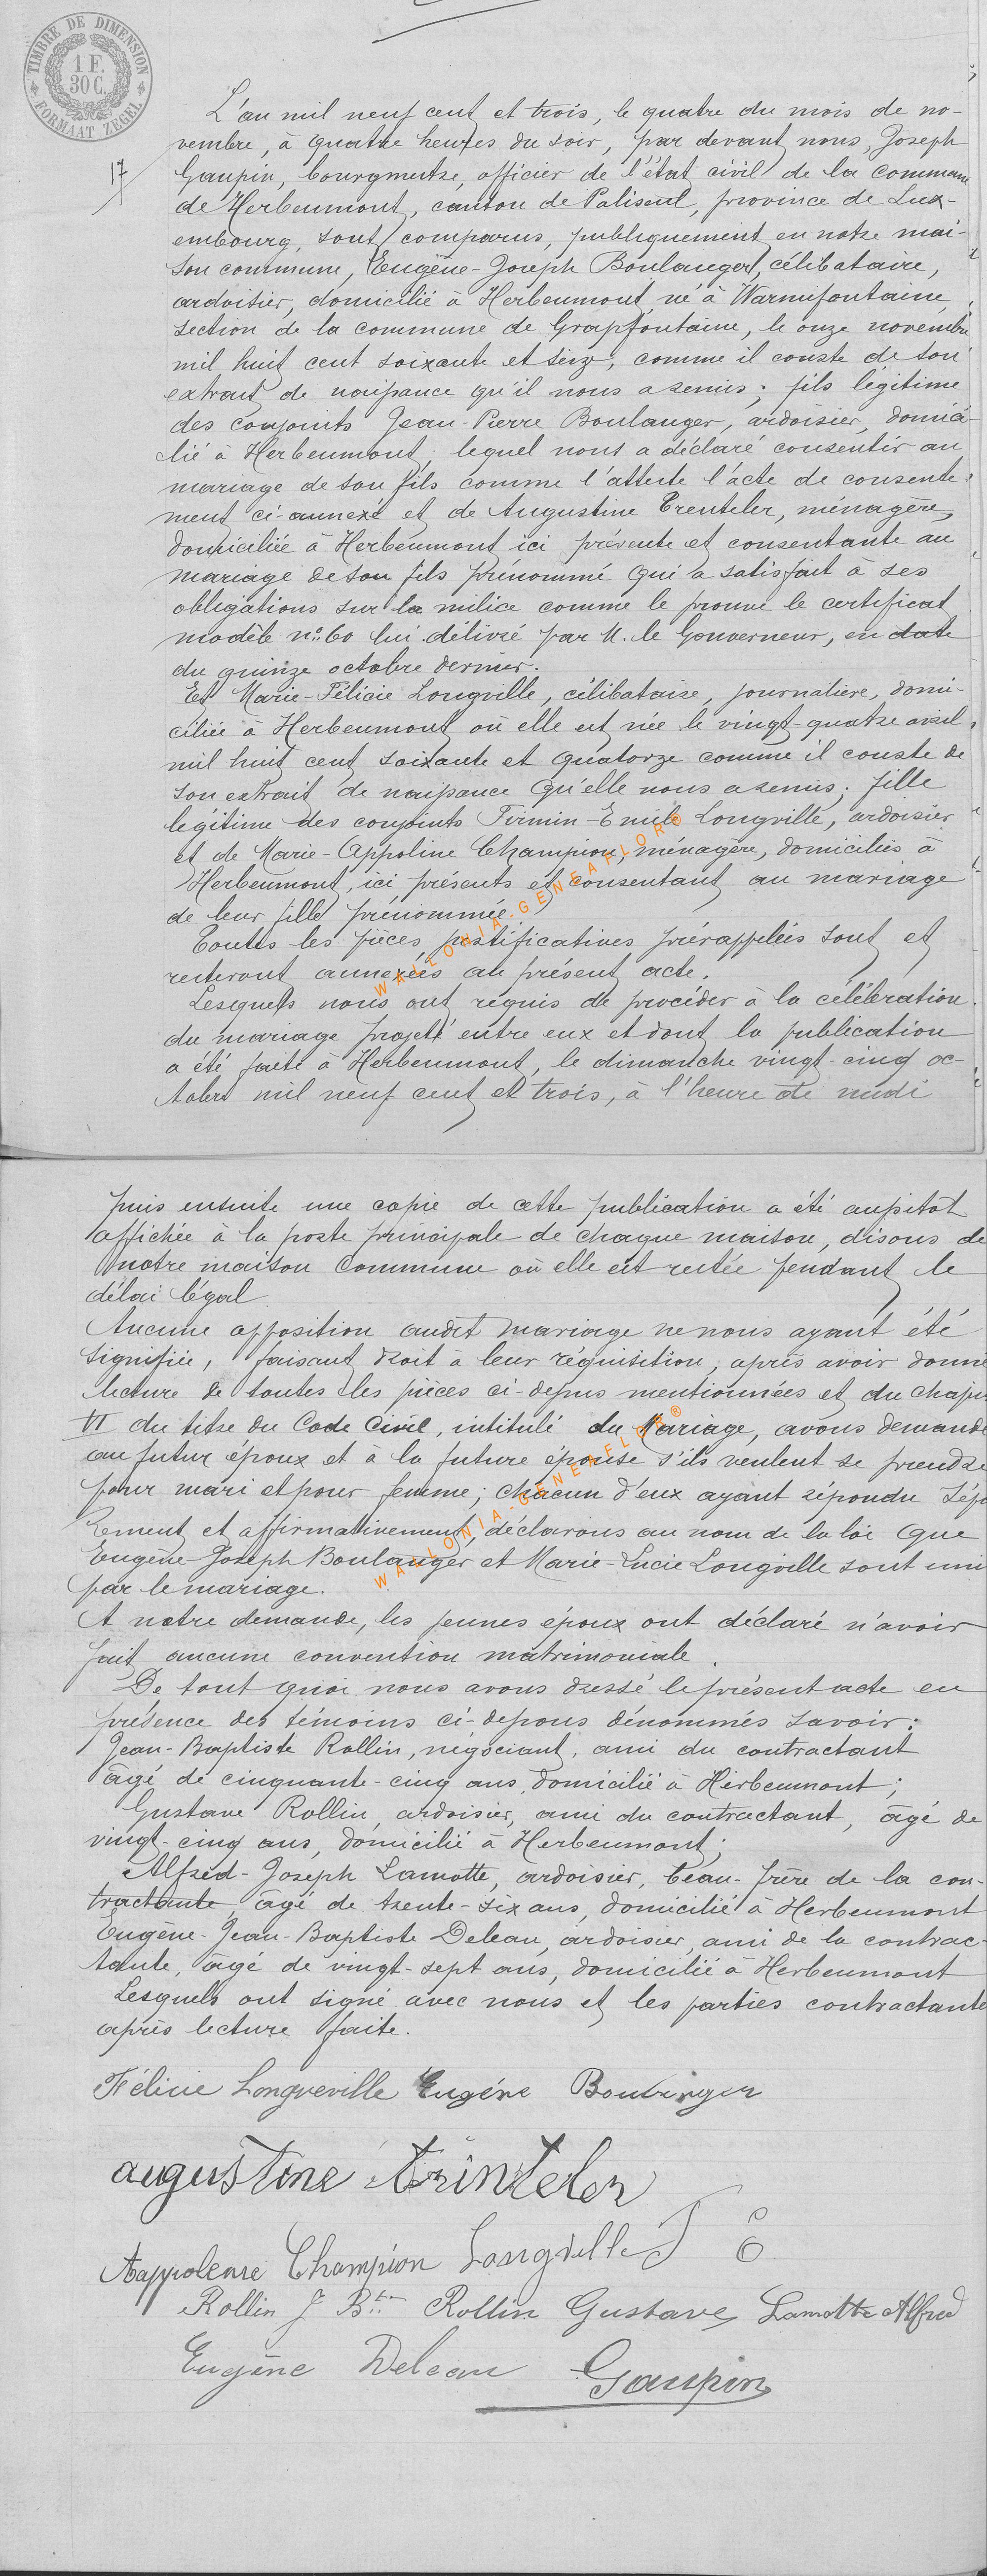 TIMBRE DE DIMENSION
1 F.
30 C.
FORMAAT ZEGEL
17
L'an mil neuf cent et trois, le quatre du mois de no-
vembre, à quatre heures du soir, par devant nous, Joseph
Gaupin, bourgmestre, officier de l'état civil de la commune
de Herbeumont, canton de Paliseul, province de Lux-
embourg, sont comparus, publiquement en notre mai-
son commune, Eugène-Joseph Boulanger, célibataire,
ardoisier, domicilié à Herbeumont, né à Warmifontaine,
section de la commune de Grapfontaine, le onze novembre
mil huit cent soixante et seize, comme il conste de son
extrait de naissance qu'il nous a remis; fils légitime
des conjoints Jean-Pierre Boulanger, ardoisier, domici-
lié à Herbeumont, lequel nous a déclaré consentir au
mariage de son fils comme l'atteste l'acte de consente-
ment ci-annexé et de Augustine Trenteler, ménagère,
domiciliée à Herbeumont ici présente et consentante au
mariage de son fils prénommé qui a satisfait à ses
obligations sur la milice comme le prouve le certificat
modèle n° 60 lui délivré par M. le Gouverneur, en date
du quinze octobre dernier.
Et Marie-Félicie Longville, célibataire, journalière, domi-
ciliée à Herbeumont où elle est née le vingt-quatre avril
mil huit cent soixante et quatorze comme il conste de
son extrait de naissance qu'elle nous a remis; fille
légitime des conjoints Firmin-Emile Longville, ardoisier
et de Marie-Appoline Champion, ménagère, domiciliés à
Herbeumont, ici présents et consentant au mariage
de leur fille prénommée.
Toutes les pièces justificatives prérappelées sont et
resteront annexées au présent acte.
Lesquels nous ont requis de procéder à la célébration
du mariage projeté entre eux et dont la publication
a été faite à Herbeumont, le dimanche vingt-cinq oc-
tobre mil neuf cent et trois, à l'heure de midi
WALLONIA-GENEAFLOR®
puis ensuite une copie de cette publication a été aussitôt
affichée à la porte principale de chaque maison, disons de
notre maison commune où elle est restée pendant le
délai légal
Aucune opposition audit mariage ne nous ayant été
signifiée, faisant droit à leur réquisition, après avoir donné
lecture de toutes les pièces ci-dessus mentionnées et du chap
VI du titre du Code Civil, intitulé du Mariage, avons demandé
au futur époux et à la future épouse s'ils veulent se prendre
pour mari et pour femme; chacun d'eux ayant répondu sépa
rement et affirmativement, déclarons au nom de la loi que
Eugène-Joseph Boulanger et Marie-Lucie Longville sont unis
par le mariage.
A notre demande, les jeunes époux ont déclaré n'avoir
fait aucune convention matrimoniale.
De tout quoi nous avons dressé le présent acte en
présence des témoins ci-dessous dénommés savoir:
Jean-Baptiste Rollin, négociant, ami du contractant
âgé de cinquante-cinq ans, domicilié à Herbeumont;
Gustave Rollin, ardoisier, ami du contractant, âgé de
vingt-cinq ans, domicilié à Herbeumont;
Alfred-Joseph Lamotte, ardoisier, beau-frère de la con-
tractante, âgé de trente-six ans, domicilié à Herbeumont
Eugène-Jean-Baptiste Deleau, ardoisier, ami de la contrac-
tante, âgé de vingt-sept ans, domicilié à Herbeumont
Lesquels ont signé avec nous et les parties contractante
après lecture faite.
WALLONIA-GENEAFLOR®
Félicie Longveville Eugène Boulanger
augustine trinteler
Champion Longville F E
Rollin J Bte Rollin Gustave Lamotte Alfred
Eugène Deleau Gaupin